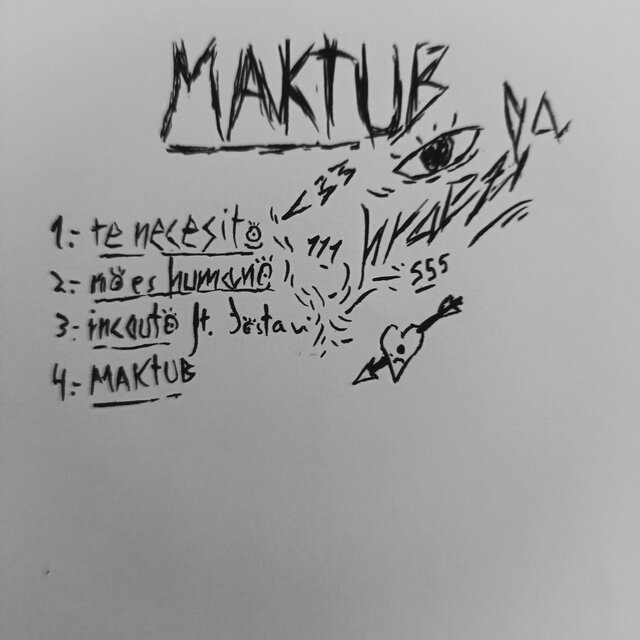 MAKTUB
ya
333
1.- te necesitö
111
2.- nö es humanö
555
3.- incautö ft.
4.- MAKTUB